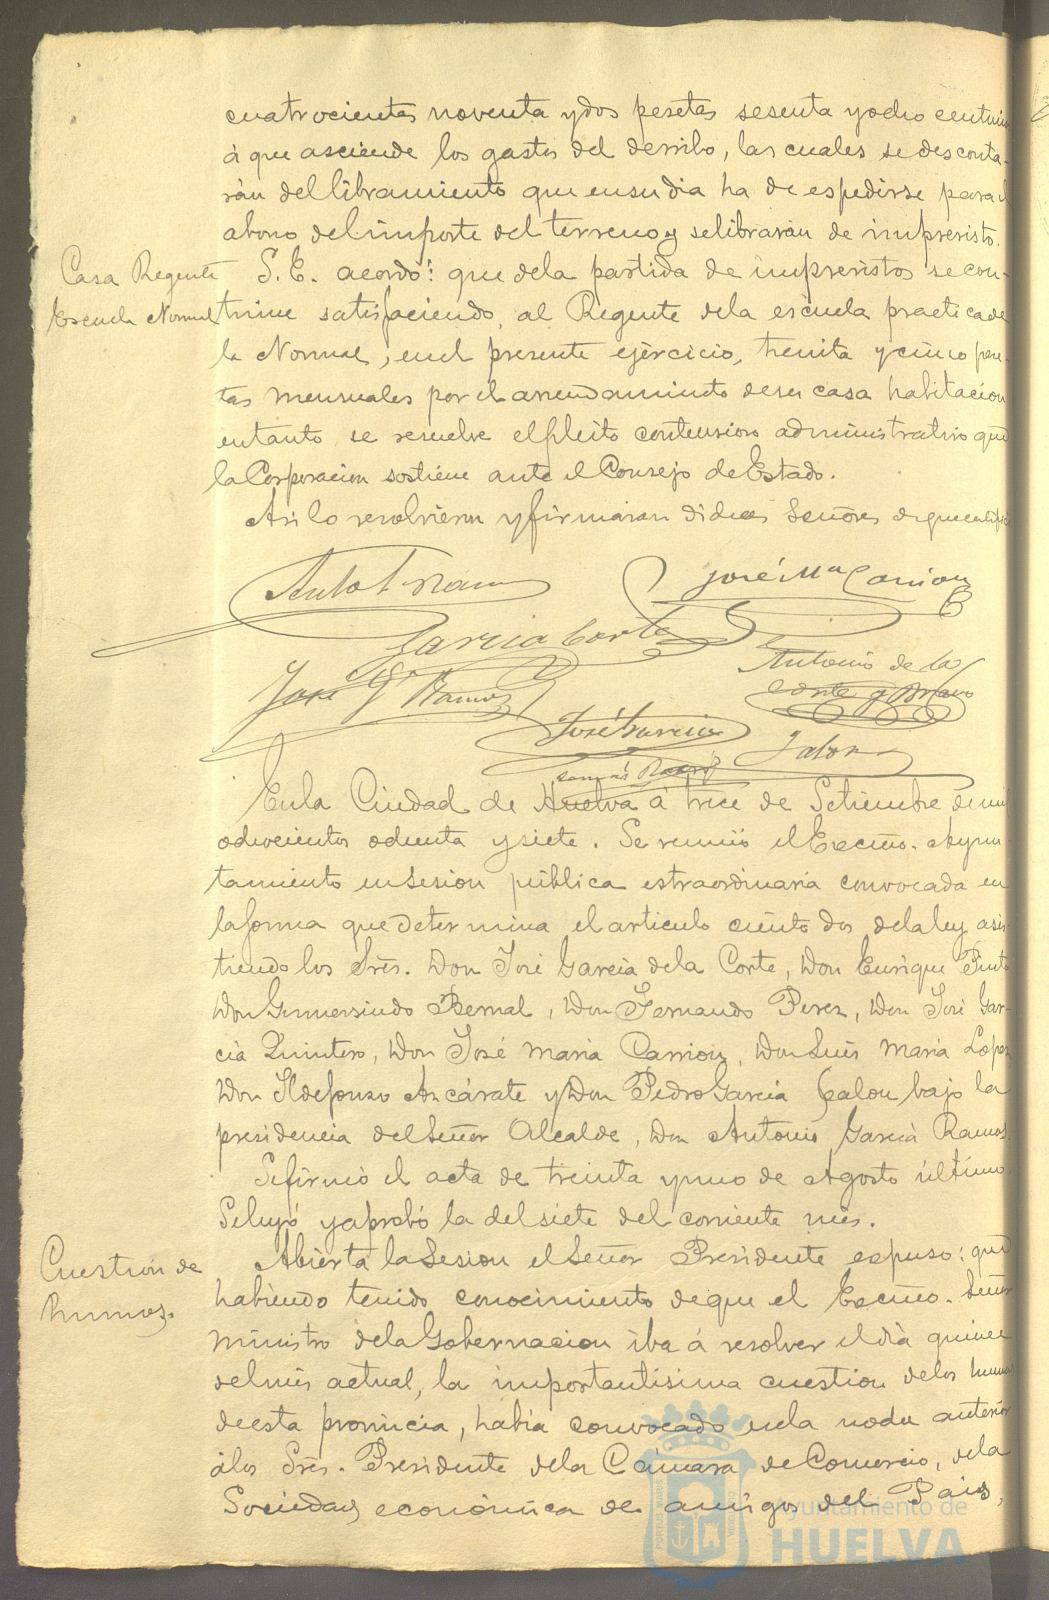 cuatrocientas noventa y dos pesetas sesenta y ocho centimos
á que asciende los gastos del derribo, las cuales se desconta-
rán del libramiento que en su dia ha de espedirse para el
abono del importe del terreno y se librarán de imprevistos.
Casa Regente
Escuela Normal
S. E. acordó: que de la partida de imprevistos se con-
tinue satisfaciendo, al Regente de la escuela practica de
la Normal, en el presente ejercicio, treinta y cinco pese-
tas mensuales por el arrendamiento de su casa habitacion
en tanto se resuelve el pleito contencioso administrativo que
la Corporacion sostiene ante el Consejo de Estado.
Asi lo resolvieron y firmaran dichos Señores de que certifico
Antº G. Ramos
José Mª Carrion
Garcia Corte
José Gª Ramos
Antonio de la
Corte y Bravo
José Garcia
Jalon
Tomás
En la Ciudad de Huelva á trece de Setiembre de mil
ochocientos ochenta y siete. Se reunió el Excmo. Ayun-
tamiento en Sesion pública estraordinaria convocada en
la forma que determina el articulo ciento dos de la ley asis-
tiendo los Srēs. Don José Garcia de la Corte, Don Enrique
Don Gumersindo Bernal, Don Fernando Perez, Don José Gar-
cia Quintero, Don José Maria Carrion, Don Luis Maria Lopez
Don Ildefonso Azcárate y Don Pedro Garcia Jalon bajo la
presidencia del Señor Alcalde, Don Antonio Garcia Ramos.
Se firmó el acta de treinta y uno de Agosto último
Se leyó y aprobó la del siete del corriente mes.
Cuestion de
humos.
Abierta la Sesion el Señor Presidente espuso: que
habiendo tenido conocimiento de que el Excmo. Señor
Ministro de la Gobernacion iba á resolver el dia quince
del mes actual, la importantisima cuestion de los humos
de esta provincia, habia convocado en la noche anterior
á los Srēs. Presidente de la Cámara de Comercio, de la
Sociedad económica de amigos del Pais,
Ayuntamiento de
HUELVA